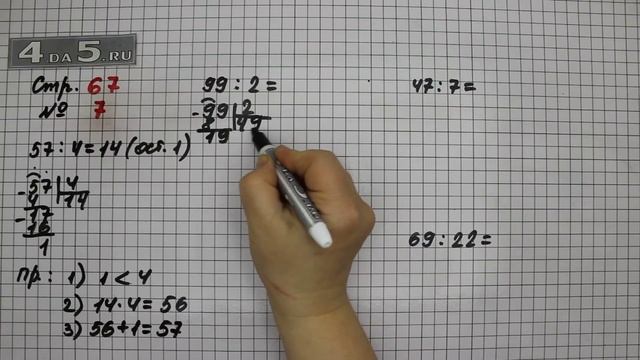 4DA5.RU
Стр. 67
№ 7
57 : 4 = 14 (ост. 1)
- 57 | 4
4 | 14
- 17
16
1
Пр: 1) 1 < 4
2) 14 · 4 = 56
3) 56 + 1 = 57
99 : 2 =
- 99 | 2
8 | 49
19
47 : 7 =
69 : 22 =